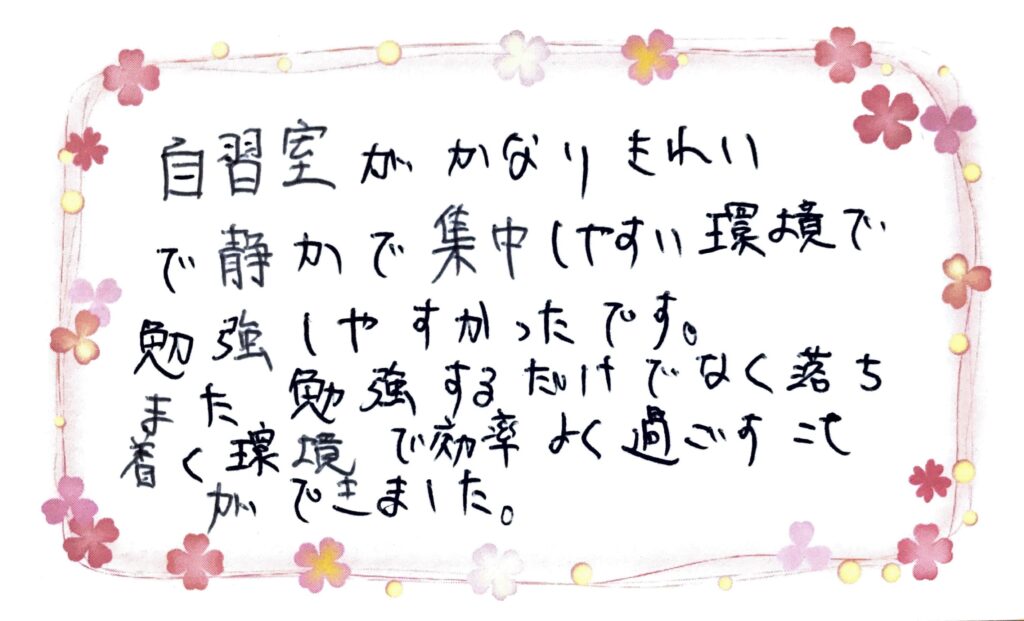 自習室がかなりきれい
で静かで集中しやすい環境で
勉強しやすかったです。
また勉強するだけでなく落ち
着く環境で効率よく過ごすこと
ができました。